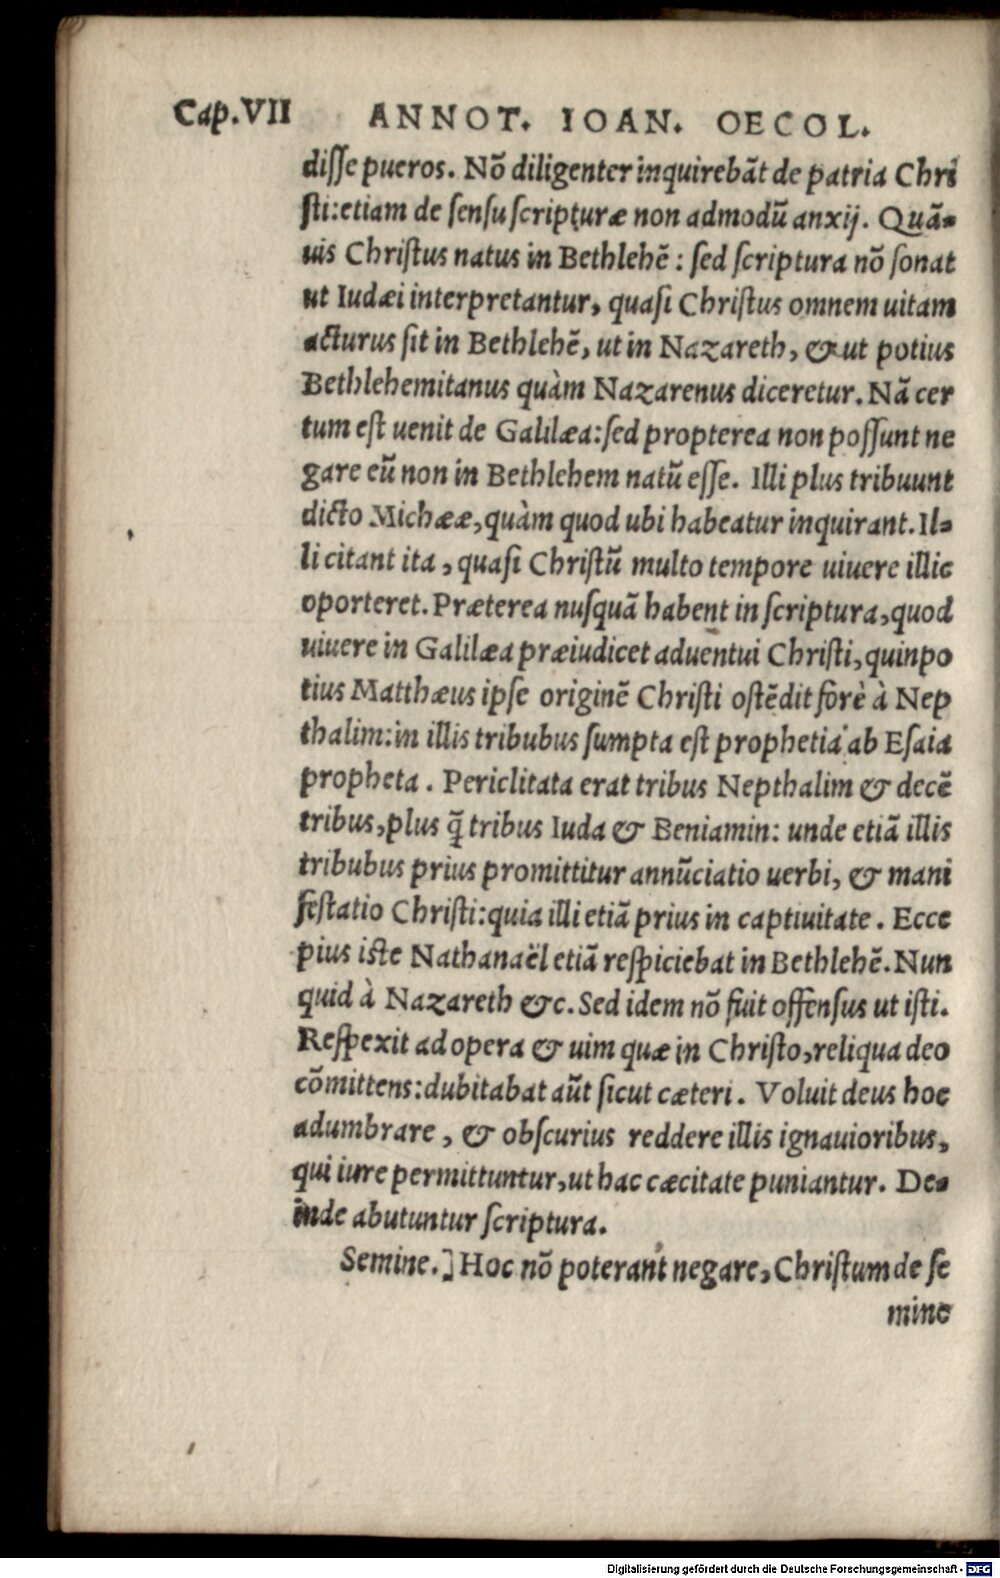 Cap.VII ANNOT. IOAN. OECOL.
diſſe pueros. Nõ diligenter inquirebãt de patria Chri
ſti:etiam de ſenſu ſcripturæ non admodũ anxij. Quã-
uis Chriſtus natus in Bethlehẽ: ſed ſcriptura nõ ſonat
ut Iudæi interpretantur, quaſi Chriſtus omnem uitam
acturus ſit in Bethlehẽ, ut in Nazareth, & ut potius
Bethlehemitanus quàm Nazarenus diceretur. Nã cer
tum eſt uenit de Galilæa:ſed propterea non poſſunt ne
gare eũ non in Bethlehem natũ eſſe. Illi plus tribuunt
dicto Michææ, quàm quod ubi habeatur inquirant. Il-
li citant ita, quaſi Chriſtũ multo tempore uiuere illic
oporteret. Præterea nuſquã habent in ſcriptura, quod
uiuere in Galilæa præiudicet aduentui Chriſti, quinpo
tius Matthæus ipſe originẽ Chriſti oſtẽdit forè à Nep
thalim:in illis tribubus ſumpta eſt prophetia ab Eſaia
propheta. Periclitata erat tribus Nepthalim & decẽ
tribus, plus q̃ tribus Iuda & Beniamin: unde etiã illis
tribubus prius promittitur annũciatio uerbi, & mani
feſtatio Chriſti:quia illi etiã prius in captiuitate. Ecce
pius iſte Nathanaël etiã reſpiciebat in Bethlehẽ. Nun
quid à Nazareth &c. Sed idem nõ fuit offenſus ut iſti.
Reſpexit ad opera & uim quæ in Chriſto, reliqua deo
cõmittens:dubitabat aũt ſicut cæteri. Voluit deus hoc
adumbrare, & obſcurius reddere illis ignauioribus,
qui iure permittuntur, ut hac cæcitate puniantur. De-
inde abutuntur ſcriptura.
Semine.] Hoc nõ poterant negare, Chriſtum de ſe
mine
Digitalisierung gefördert durch die Deutsche Forschungsgemeinschaft - DFG